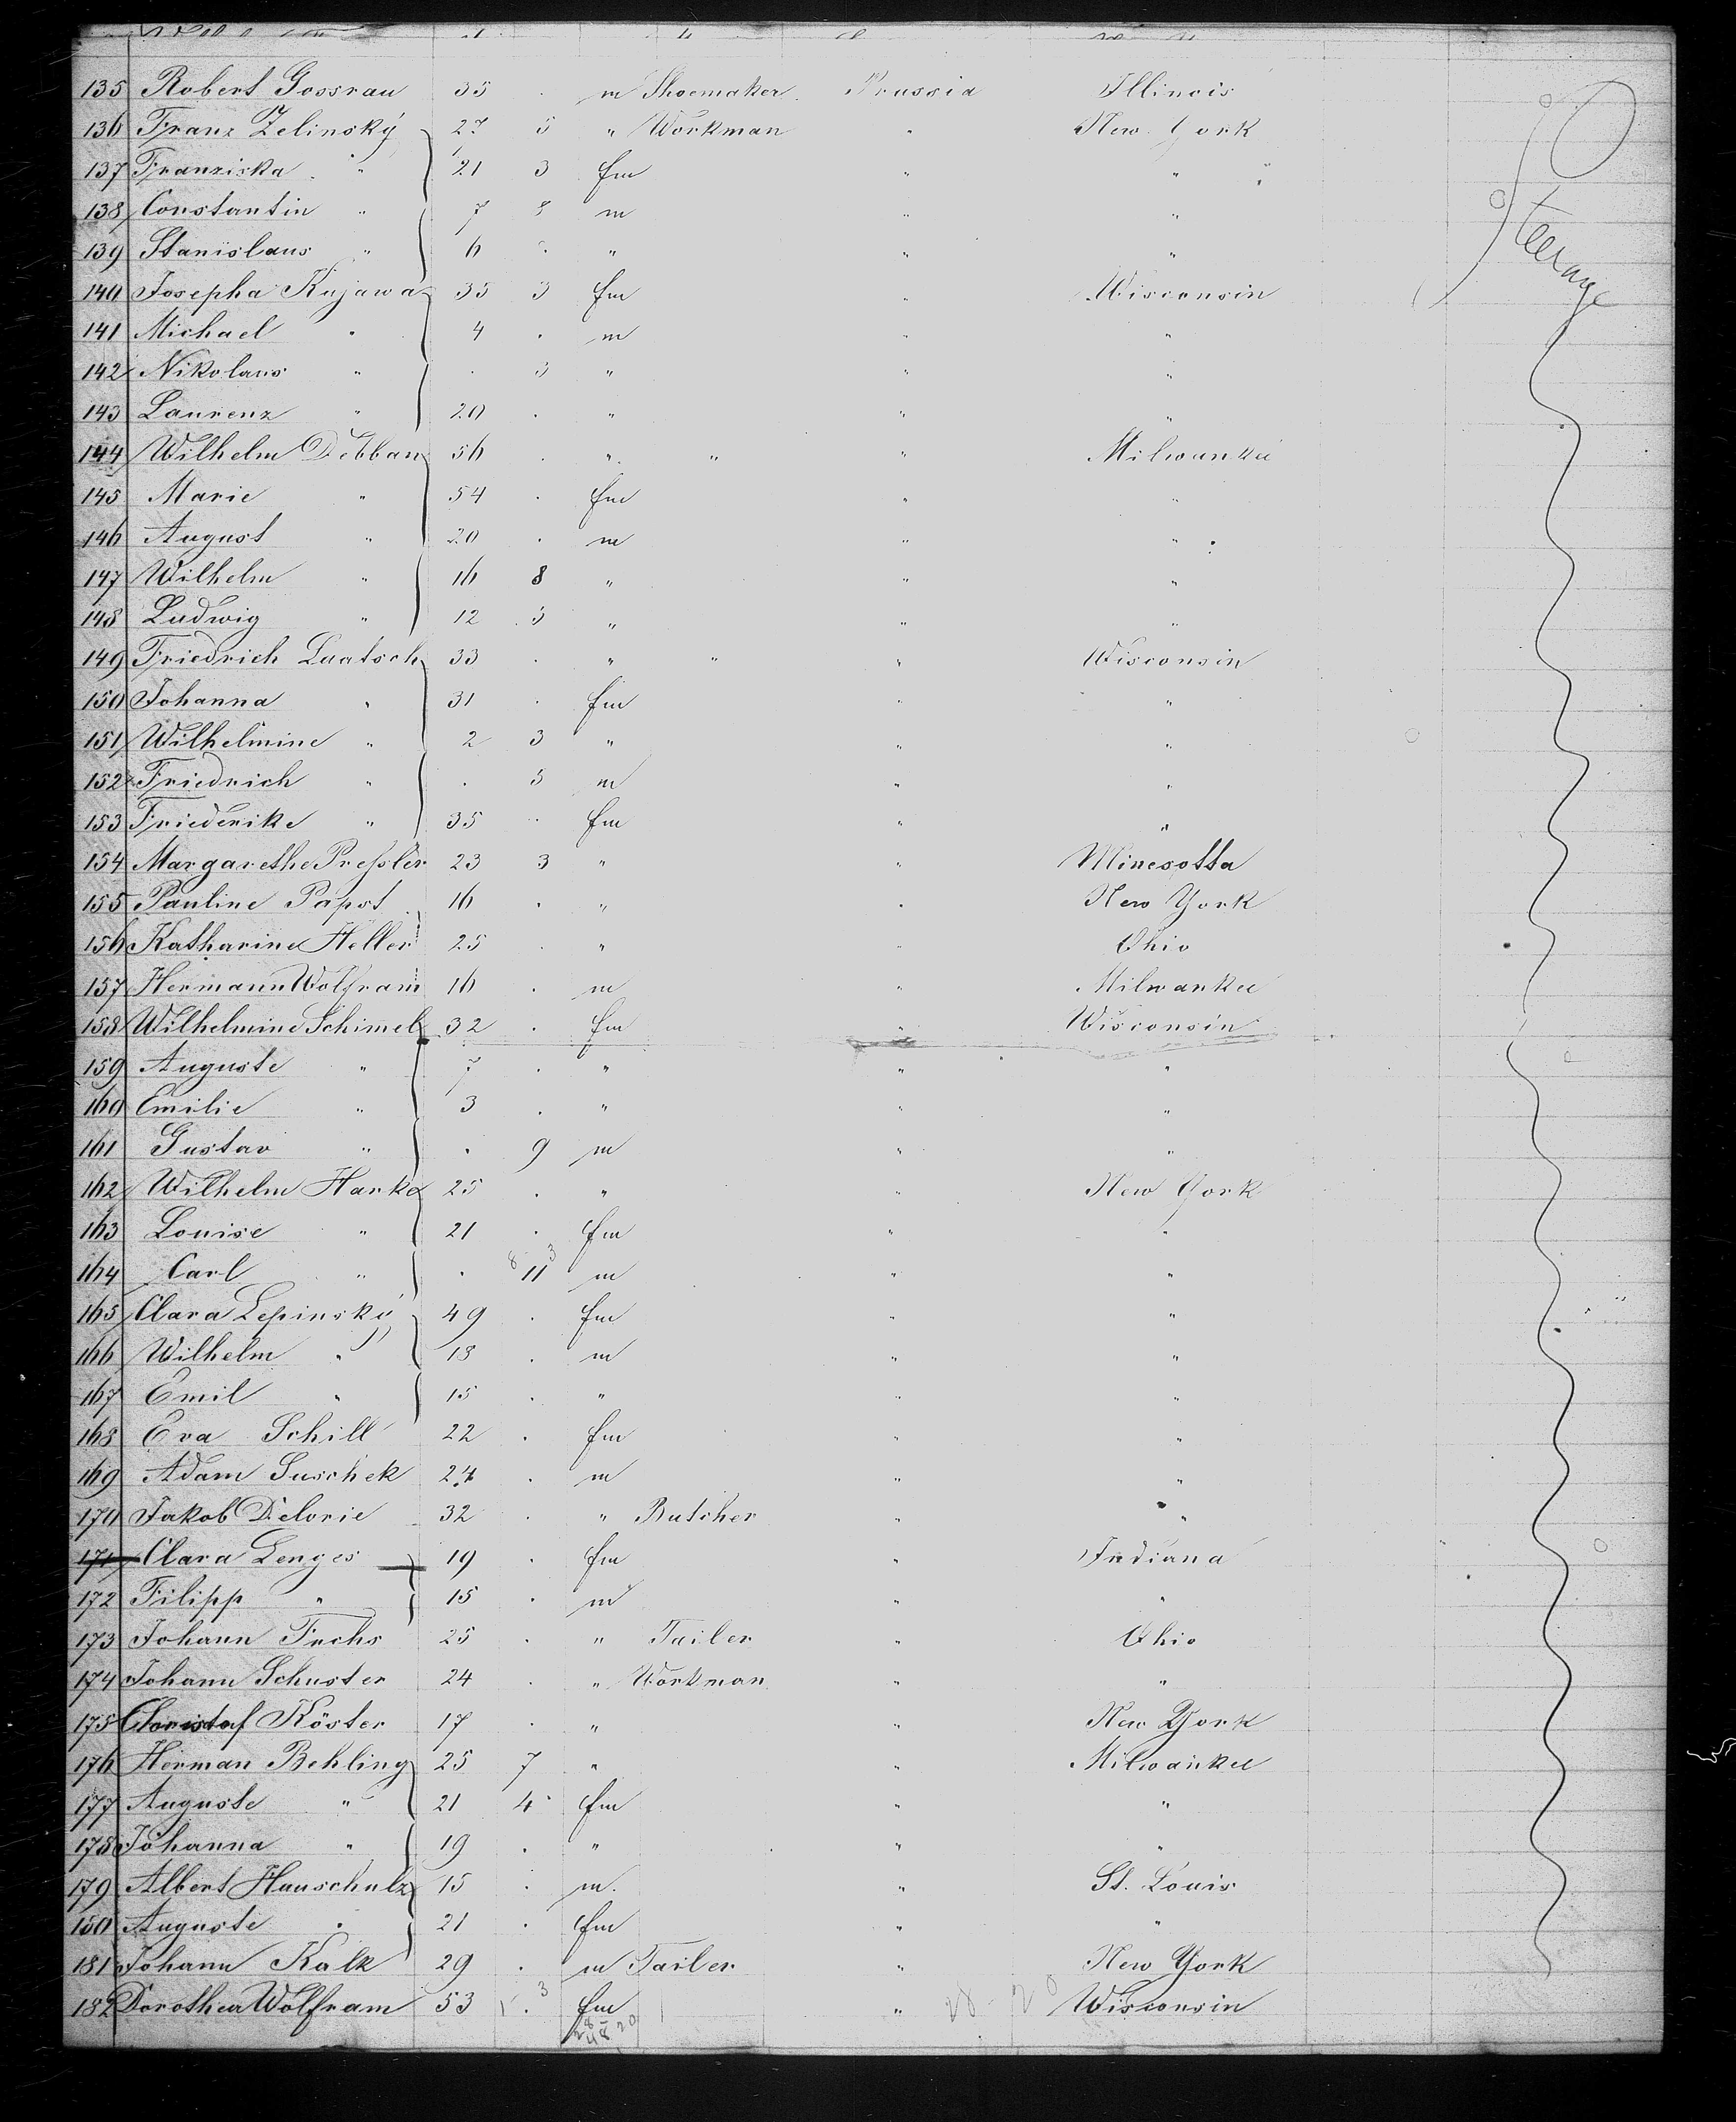 135 Robert Gossrau 35 . m Shoemaker Prussia Illinois
136 Franz Zelinský 27 5 " Workman " New York
137 Franziska " 21 3 fm " "
138 Constantin " 7 8 m " "
139 Stanislaus " 6 . " " "
140 Josepha Kujawa 35 3 fm " Wisconsin
141 Michael " 4 . m " "
142 Nikolaus " . 3 " " "
143 Laurenz " 20 . " " "
144 Wilhelm Debban 56 . " " " Milwaukee
145 Marie " 54 . fm " "
146 August " 20 . m " "
147 Wilhelm " 16 8 " " "
148 Ludwig " 12 3 " " "
149 Friedrich Laatsch 33 . " " " Wisconsin
150 Johanna " 31 . fm " "
151 Wilhelmine " 2 3 " " "
152 Friedrich " . 5 m " "
153 Friederike " 35 . fm " "
154 Margarethe Preßler 23 3 " " Minesotta
155 Pauline Papst 16 . " " New York
156 Katharine Heller 25 . " " Ohio
157 Hermann Wolfram 16 . m " Milwaukee
158 Wilhelmine Schimel 32 . fm " Wisconsin
159 Auguste " 7 . " " "
160 Emilie " 3 . " " "
161 Gustav " . 9 m " "
162 Wilhelm Hanke 25 . " " New York
163 Louise " 21 . fm " "
164 Carl " . 11 m " "
165 Clara Lepinský 49 . fm " "
166 Wilhelm " 18 . m " "
167 Emil " 15 . " " "
168 Eva Schill 22 . fm " "
169 Adam Suschek 24 . m " "
170 Jakob Delorie 32 . " Butcher " "
171 Clara Lenges 19 . fm " Indiana
172 Filipp " 15 . m " "
173 Johann Fuchs 25 . " Tailer " Ohio
174 Johann Schuster 24 . " Workman " "
175 Christof Köster 17 . " " New York
176 Herman Behling 25 7 " " Milwaukee
177 Auguste " 21 4 fm " "
178 Johanna " 19 . " " "
179 Albert Hauschulz 15 . m. " St. Louis
180 Auguste " 21 . fm " "
181 Johann Kalk 29 . m Tailer " New York
182 Dorothea Wolfram 53 . fm " Wisconsin
Steerage
8 3
3
28 20
28 20
48